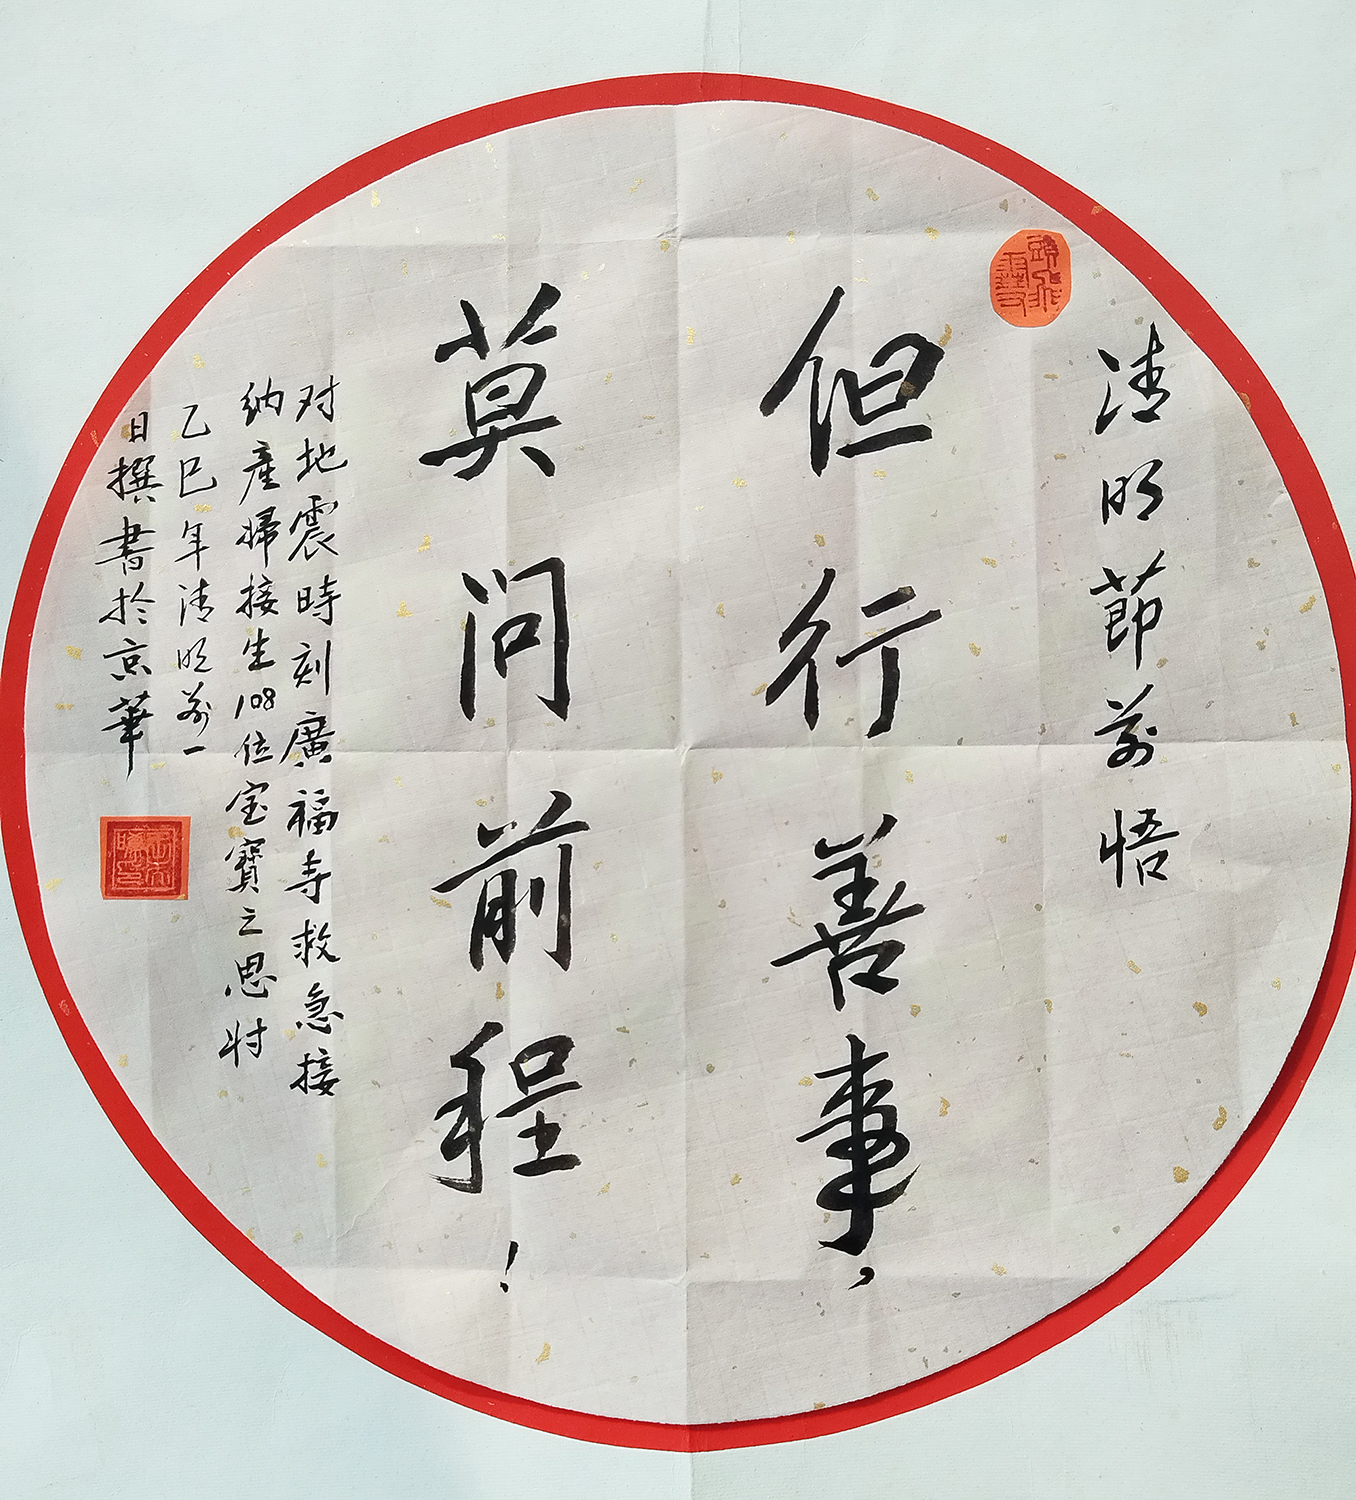 清明節前悟
但行善事，
莫问前程！
对地震時刻廣福寺救急接
納產婦接生108位宝寶之思时
乙巳年清明前一
日撰書於京華